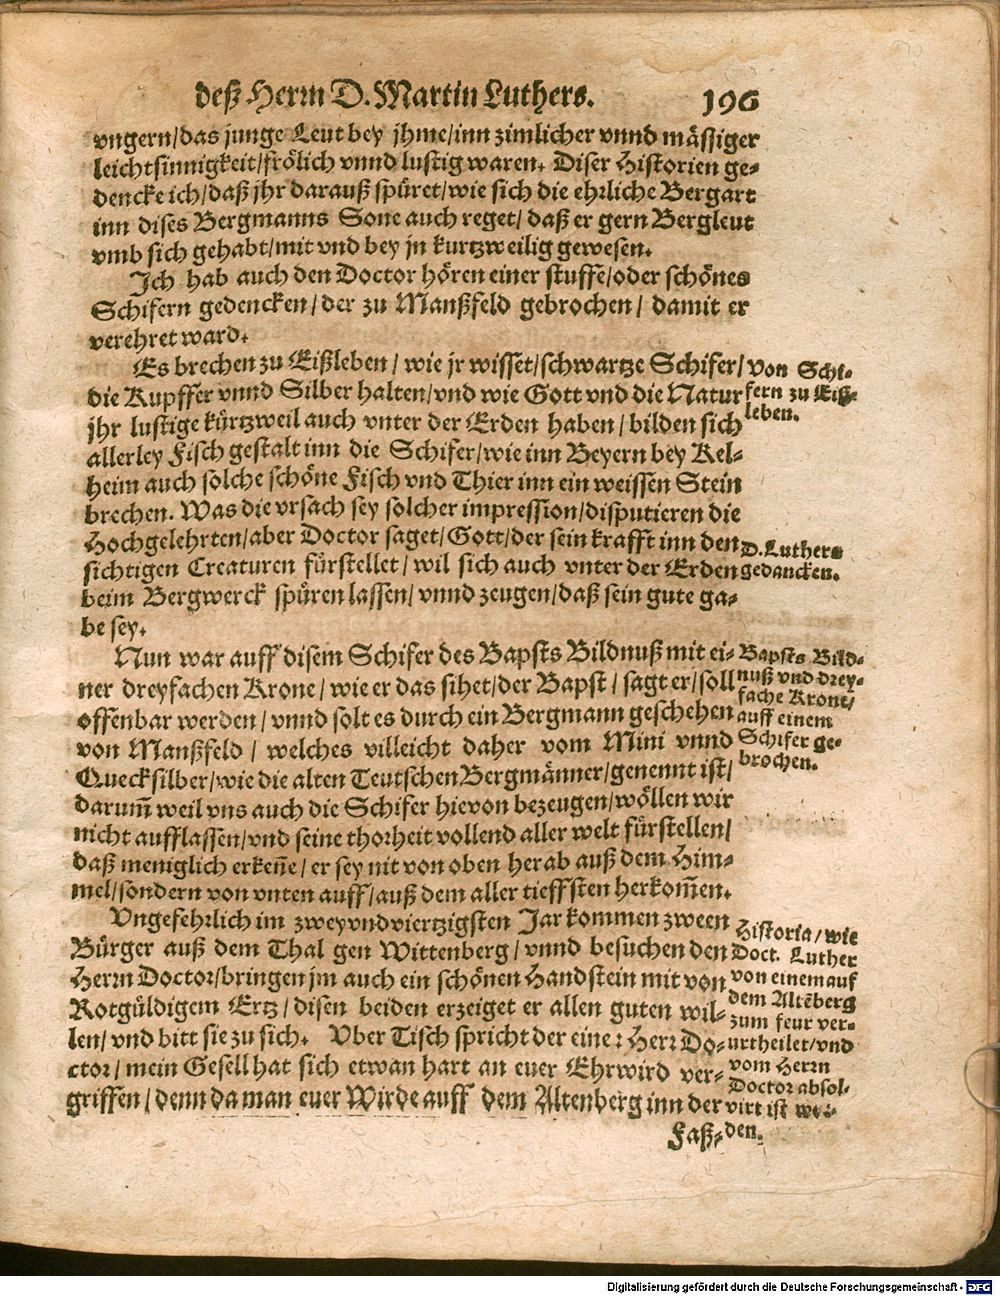 deß Herrn D. Martin Luthers. 196
vngern/das junge Leut bey jhme/inn zimlicher vnnd mässiger
leichtsinnigkeit/frölich vnnd lustig waren. Diser Historien ge⸗
dencke ich/daß jhr darauß spüret/wie sich die ehrliche Bergart
inn dises Bergmanns Sone auch reget/daß er gern Bergleut
vmb sich gehabt/mit vnd bey jn kurtzweilig gewesen.
Ich hab auch den Doctor hören einer stuffe/oder schönes
Schifern gedencken/der zu Manßfeld gebrochen/damit er
verehret ward.
Es brechen zu Eißleben/wie jr wisset/schwartze Schifer/
die Kupffer vnnd Silber halten/vnd wie Gott vnd die Natur
jhr lustige kürtzweil auch vnter der Erden haben/bilden sich
allerley Fisch gestalt inn die Schifer/wie inn Beyern bey Kel⸗
heim auch solche schöne Fisch vnd Thier inn ein weissen Stein
brechen. Was die vrsach sey solcher impression/disputieren die
Hochgelehrten/aber Doctor saget/Gott/der sein krafft inn den
sichtigen Creaturen fürstellet/wil sich auch vnter der Erden
beim Bergwerck spüren lassen/vnnd zeugen/daß sein gute ga⸗
be sey.
Von Schi⸗
fern zu Eiß⸗
leben.
D. Luthers
gedancken.
Nun war auff disem Schifer des Bapsts Bildnuß mit ei⸗
ner dreyfachen Krone/wie er das sihet/der Bapst/sagt er/soll
offenbar werden/vnnd solt es durch ein Bergmann geschehen
von Manßfeld/welches villeicht daher vom Mini vnnd
Quecksilber/wie die alten Teutschen Bergmänner/genennt ist/
darum̃ weil vns auch die Schifer hievon bezeugen/wöllen wir
nicht aufflassen/vnd seine thorheit vollend aller welt fürstellen/
daß meniglich erkeñe/er sey nit von oben herab auß dem Him⸗
mel/sondern von vnten auff/auß dem aller tieffsten herkom̃en.
Bapsts Bild⸗
nuß vnd drey⸗
fache Krone/
auff einem
Schifer ge⸗
brochen.
Vngefehrlich im zweyvndviertzigsten Jar kommen zween
Bürger auß dem Thal gen Wittenberg/vnnd besuchen den
Herrn Doctor/bringen jm auch ein schönen Handstein mit von
Rotgüldigem Ertz/disen beiden erzeiget er allen guten wil⸗
len/vnd bitt sie zu sich. Vber Tisch spricht der eine: Herr Do⸗
ctor/mein Gesell hat sich etwan hart an euer Ehrwird ver⸗
griffen/denn da man euer Wirde auff dem Altenberg inn der
Faß⸗
Historia/wie
Doct. Luther
von einem auf
dem Altẽberg
zum feur ver⸗
urtheilet/vnd
vom Herrn
Doctor absol⸗
virt ist wor⸗
den.
Digitalisierung gefördert durch die Deutsche Forschungsgemeinschaft - DFG